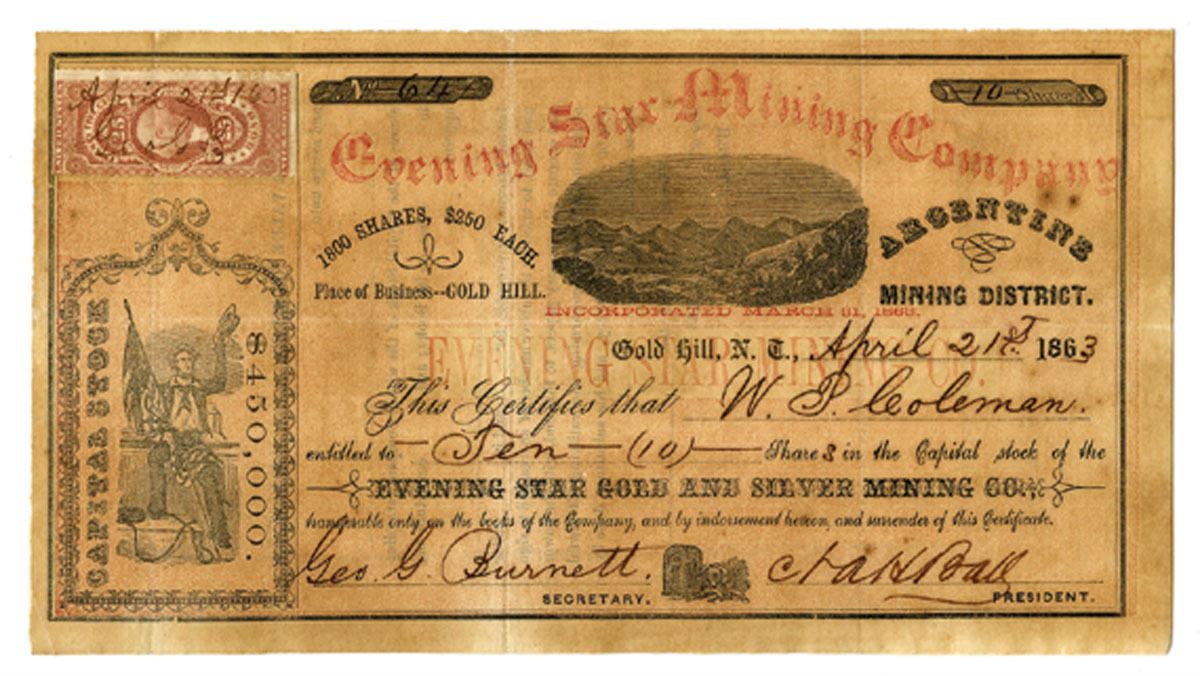 April 21st 1863
No. 641
10 Shares
Evening Star Mining Company
1800 SHARES, $250 EACH.
Place of Business--GOLD HILL.
ARGENTINE
MINING DISTRICT.
INCORPORATED MARCH 31, 1863.
EVENING STAR MINING CO.
Gold Hill, N. T., April 21st. 1863
This Certifies that W. P. Coleman.
entitled to Ten (10) Shares in the Capital stock of the
EVENING STAR GOLD AND SILVER MINING CO.,
transferable only on the books of the Company, and by indorsement hereon, and surrender of this Certificate.
Geo. G. Burnett.
SECRETARY.
Ball
PRESIDENT.
CAPITAL STOCK
$450,000.